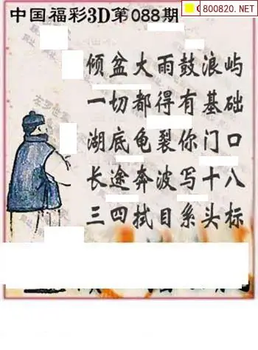 0800820.NET
中国福彩3D第088期
倾盆大雨鼓浪屿
一切都得有基础
湖底龟裂你门口
长途奔波写十八
三四拭目系头标